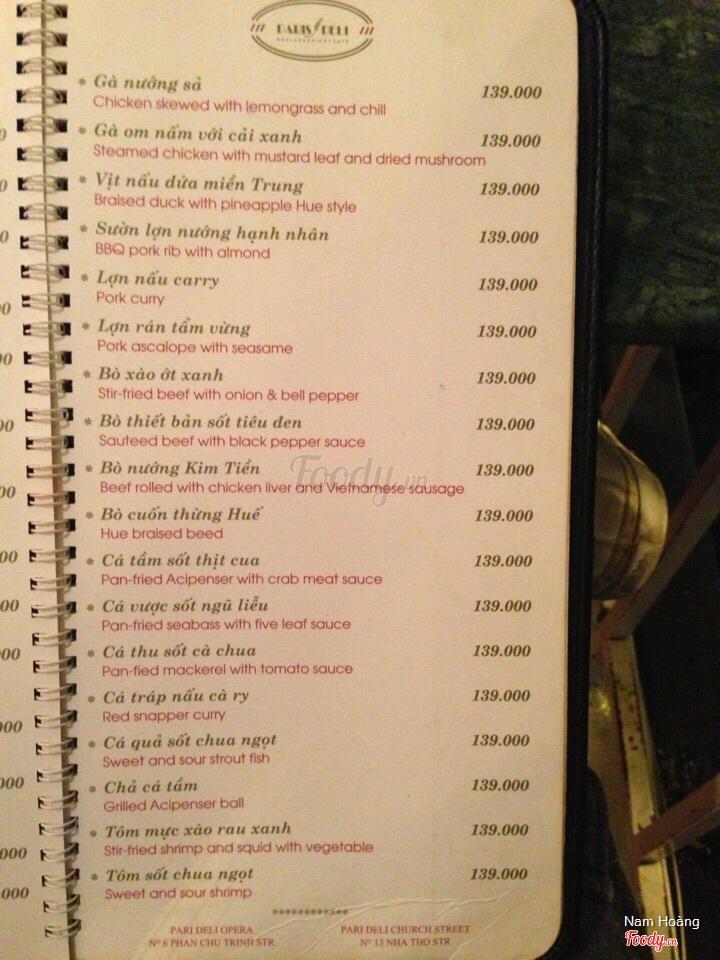 PARIS DELI
* Gà nướng sả 139.000
Chicken skewed with lemongrass and chill
* Gà om nấm với cải xanh 139.000
Steamed chicken with mustard leaf and dried mushroom
* Vịt nấu dứa miền Trung 139.000
Braised duck with pineapple Hue style
* Sườn lợn nướng hạnh nhân 139.000
BBQ pork rib with almond
* Lợn nấu carry 139.000
Pork curry
* Lợn rán tẩm vừng 139.000
Pork ascalope with seasame
* Bò xào ớt xanh 139.000
Stir-fried beef with onion & bell pepper
* Bò thiết bản sốt tiêu đen 139.000
Sauteed beef with black pepper sauce
* Bò nướng Kim Tiền 139.000
Beef rolled with chicken liver and Vietnamese sausage
* Bò cuốn thừng Huế 139.000
Hue braised beed
* Cá tầm sốt thịt cua 139.000
Pan-fried Acipenser with crab meat sauce
* Cá vược sốt ngũ liễu 139.000
Pan-fried seabass with five leaf sauce
* Cá thu sốt cà chua 139.000
Pan-fied mackerel with tomato sauce
* Cá tráp nấu cà ry 139.000
Red snapper curry
* Cá quả sốt chua ngọt 139.000
Sweet and sour strout fish
* Chả cá tầm 139.000
Grilled Acipenser ball
* Tôm mực xào rau xanh 139.000
Stir-fried shrimp and squid with vegetable
* Tôm sốt chua ngọt 139.000
Sweet and sour shrimp
PARI DELI OPERA
Nº 6 PHAN CHU TRINH STR.
PARI DELI CHURCH STREET
Nº 13 NHA THO STR
Foody.vn
Nam Hoàng
Foody.vn